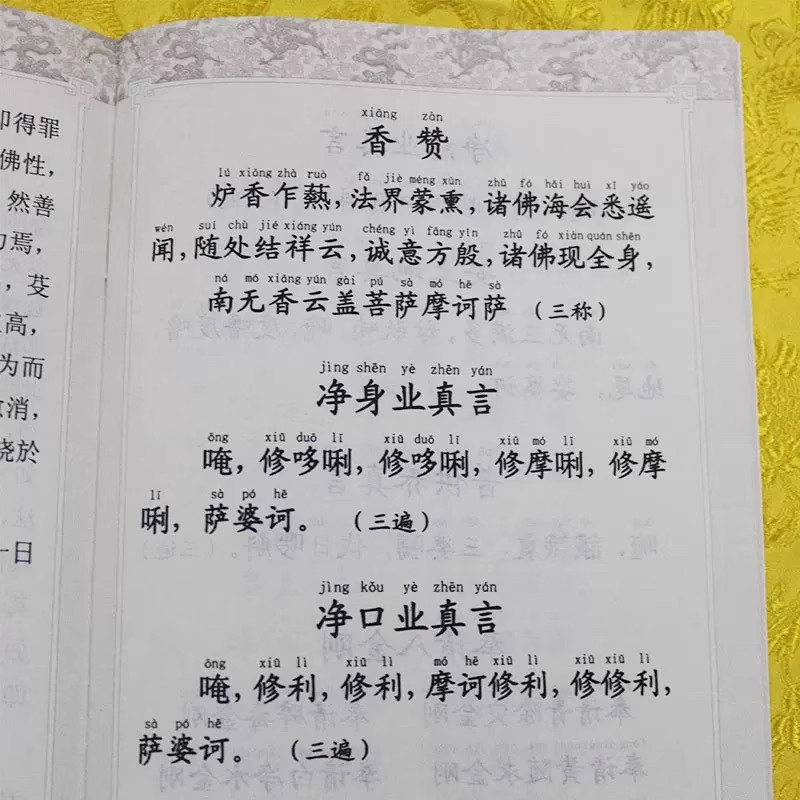 得罪
佛性，
然善
焉，
，芟
高，
为而
消，
於
一日
xiāng zàn
香赞
lú xiāng zhà ruò fǎ jiè méng xūn zhū fó hǎi huì xī yáo
炉香乍爇，法界蒙熏，诸佛海会悉遥
wén suí chù jié xiáng yún chéng yì fāng yīn zhū fó xiàn quán shēn
闻，随处结祥云，诚意方殷，诸佛现全身，
ná mó xiāng yún gài pú sà mó hē sà
南无香云盖菩萨摩诃萨（三称）
jìng shēn yè zhēn yán
净身业真言
ōng xiū duō lī xiū duō lī xiū mó lī xiū mó
唵，修哆唎，修哆唎，修摩唎，修摩
lī sà pó hē
唎，萨婆诃。（三遍）
jìng kǒu yè zhēn yán
净口业真言
ōng xiū lì xiū lì mó hē xiū lì xiū xiū lì
唵，修利，修利，摩诃修利，修修利，
sà pó hē
萨婆诃。（三遍）